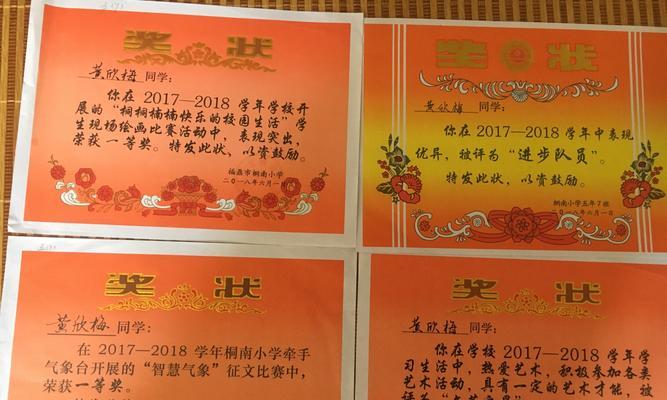 奖 状
黄欣梅 同学：
你在 2017—2018 学年学校开
展的“桐桐楠楠快乐的校园生活”学
生现场绘画比赛活动中，表现突出，
荣获一等奖。特发此状，以资鼓励。
福鼎市桐南小学
二〇一八年六月一
奖 状
黄欣梅 同学：
你在 2017—2018 学年中表现
优异，被评为“进步队员”。
特发此状，以资鼓励。
桐南小学五年7班
二〇一八年六月一日
奖 状
黄欣梅 同学：
在 2017—2018 学年桐南小学牵手
气象台开展的“智慧气象”征文比赛中，
荣获一等奖。
奖 状
黄欣梅 同学：
你在学校 2017—2018 学年学
习生活中，热爱艺术，积极参加各类
艺术活动，具有一定的艺术才能，被